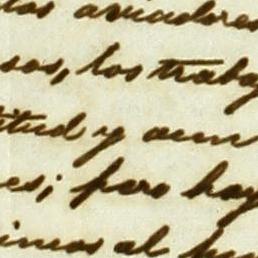 los aviadores
sos, los trabaj
titud y aun
es; pero hay
imos al